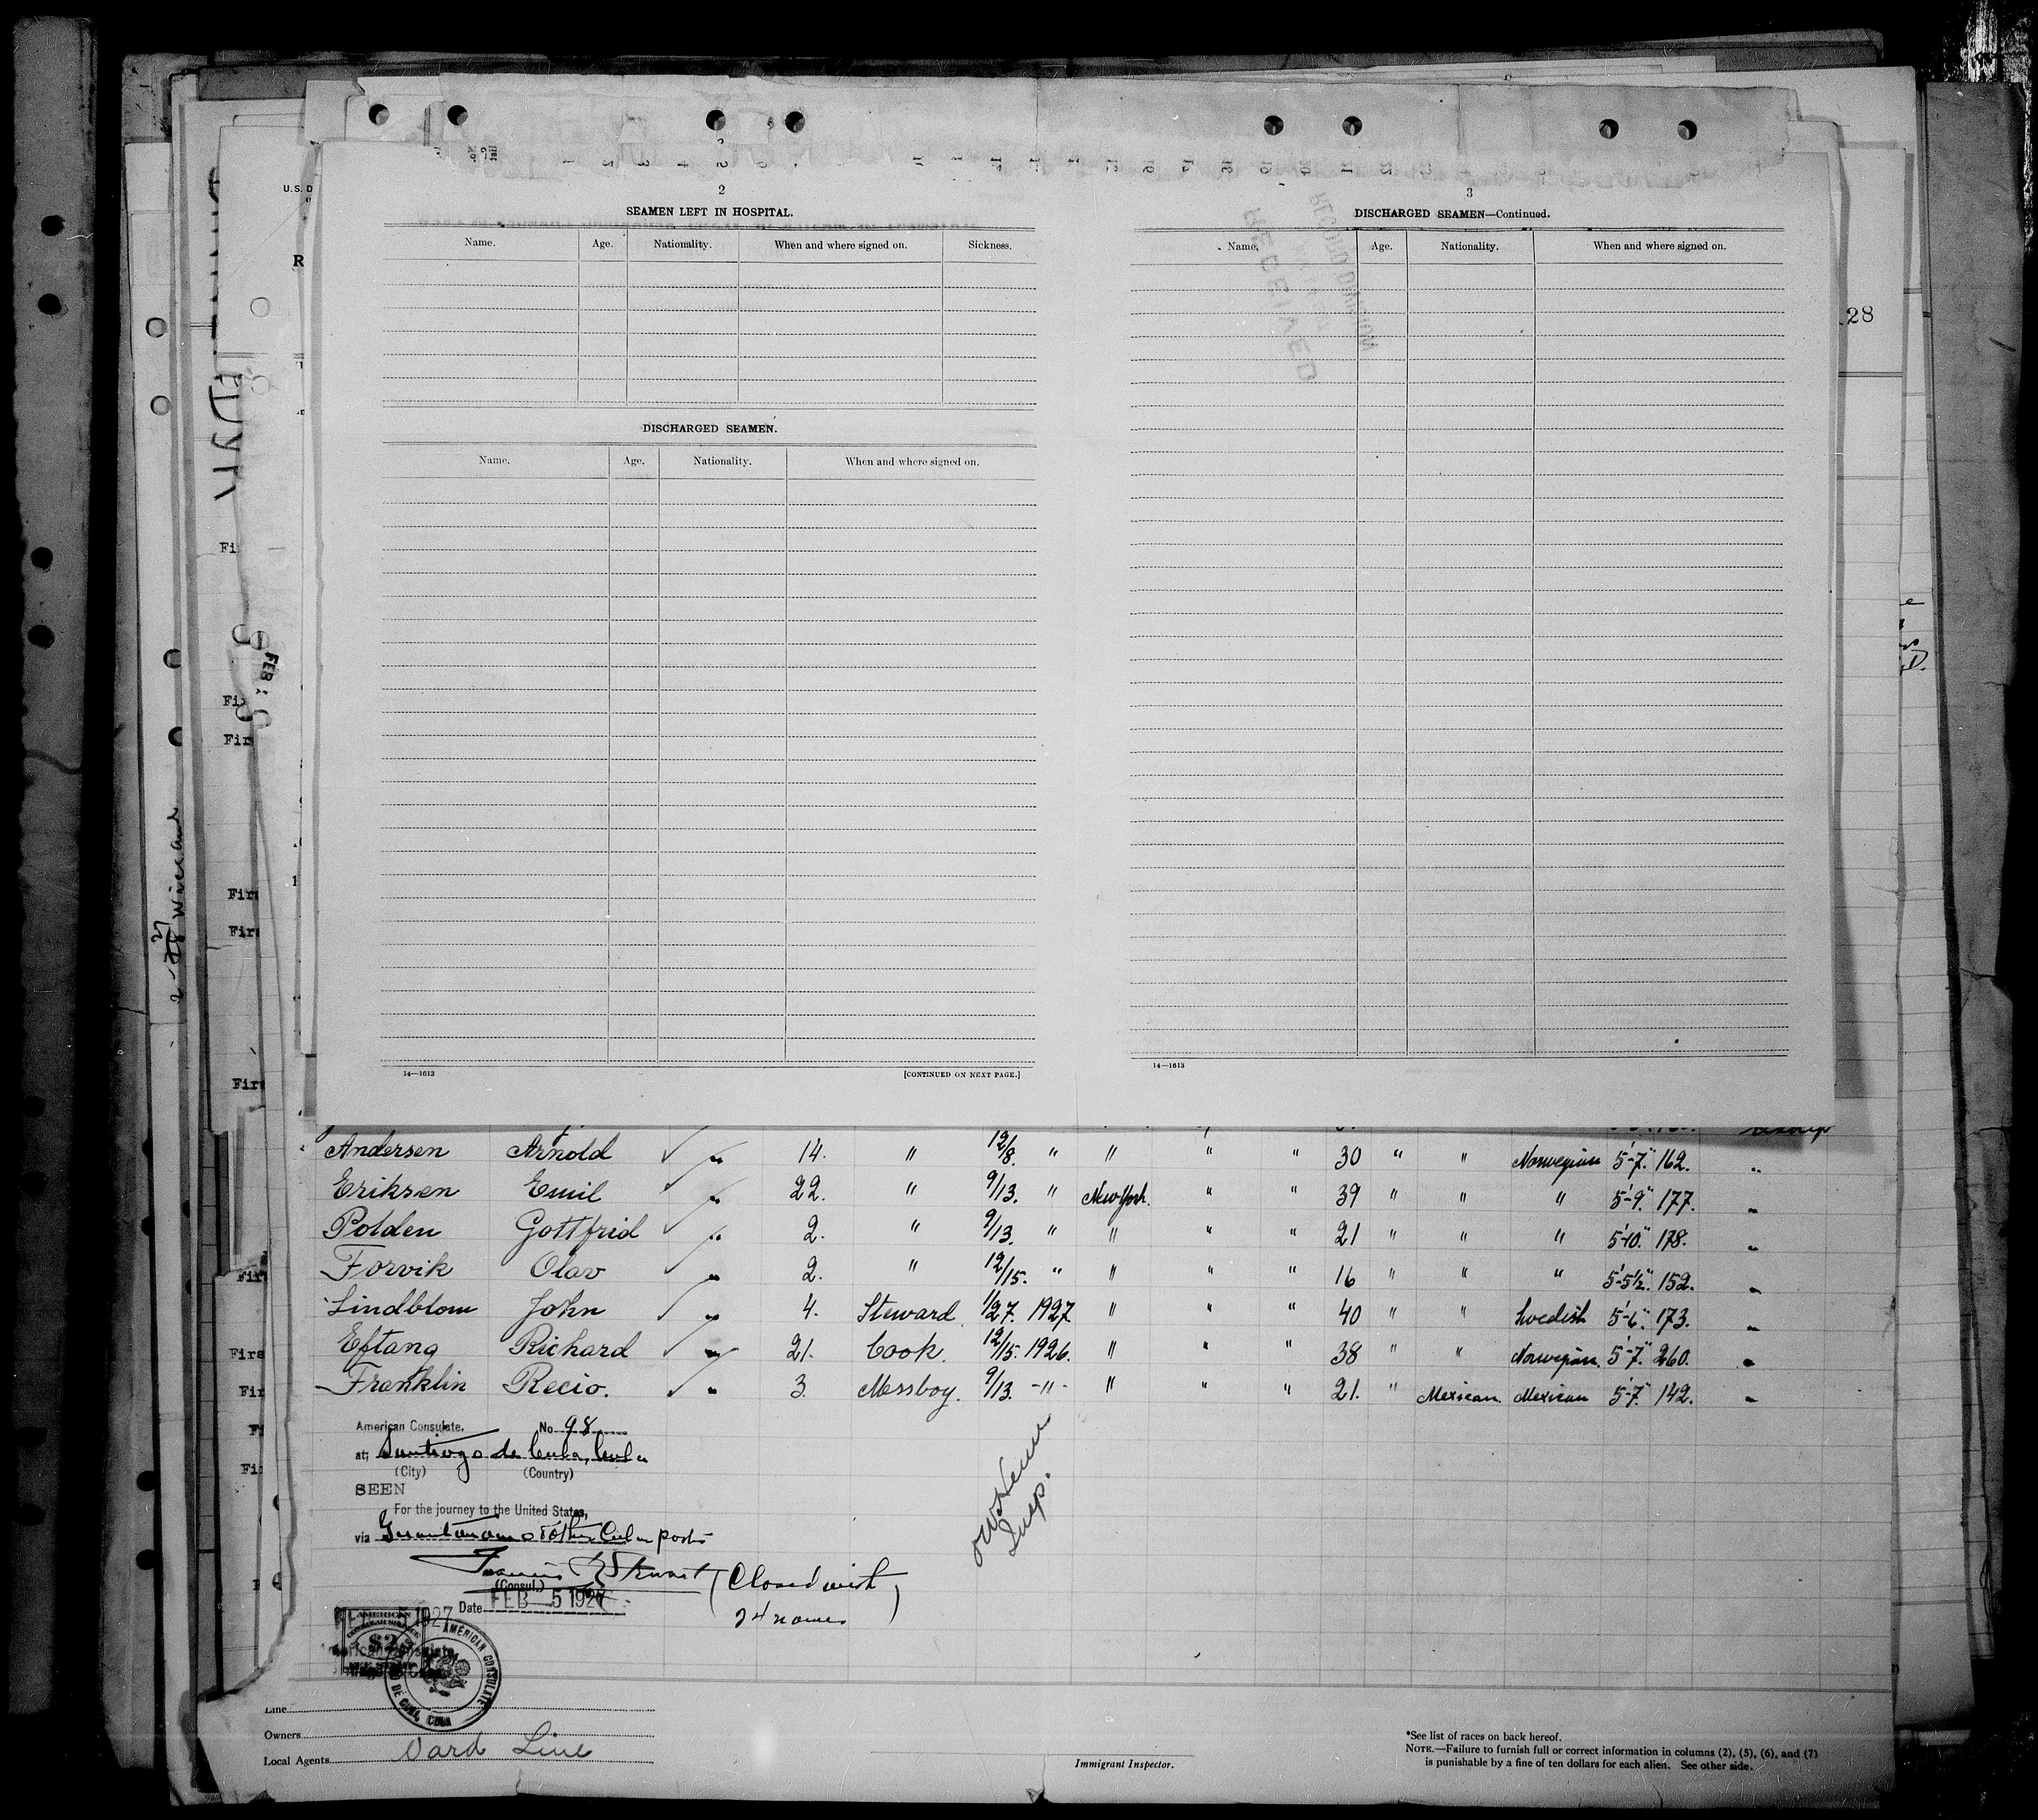 2
SEAMEN LEFT IN HOSPITAL.
Name. Age. Nationality. When and where signed on. Sickness.
DISCHARGED SEAMEN.
Name. Age. Nationality. When and where signed on.
14—1613 [CONTINUED ON NEXT PAGE.]
3
DISCHARGED SEAMEN—Continued.
Name. Age. Nationality. When and where signed on.
RECEIVED
14—1613
28
U.S. D
R
Fi
FEB
Fir
Fir
Firs
Firs
Firs
Andersen Arnold ✓ " 14. " 12/8. " " " " 30 " " Norwegian 5'-7". 162. "
Eriksen Emil ✓ " 22. " 9/13. " New York. " " 39 " " " 5'-9". 177. "
Polden Gottfrid ✓ " 2. " 9/13. " " " " 21 " " " 5'-10". 178. "
Forvik Olav ✓ " 2. " 12/15. " " " " 16 " " " 5'-5½". 152. "
Lindblom John ✓ " 4. Steward. 1/27. 1927 " " " 40 " " Swedish 5'-6". 173. "
Eftang Richard ✓ " 21. Cook. 12/15. 1926. " " " 38 " " Norwegian. 5'-7". 260. "
Franklin Recio. ✓ " 3. Messboy. 9/13. -"- " " " 21. " Mexican Mexican 5'-7". 142. "
American Consulate. No. 98
at Santiago de Cuba, Cuba
(City) (Country)
SEEN
For the journey to the United States,
via Guantanamo & other Cuban ports
(Consul.)
Date FEB 5 1927
(Closed with
24 names)
Insp.
AMERICAN
$2
AMERICAN CONSULATE
DE CUBA, CUBA
Line
Owners
Local Agents Ward Line
Immigrant Inspector.
*See list of races on back hereof.
NOTE.—Failure to furnish full or correct information in columns (2), (5), (6), and (7)
is punishable by a fine of ten dollars for each alien. See other side.